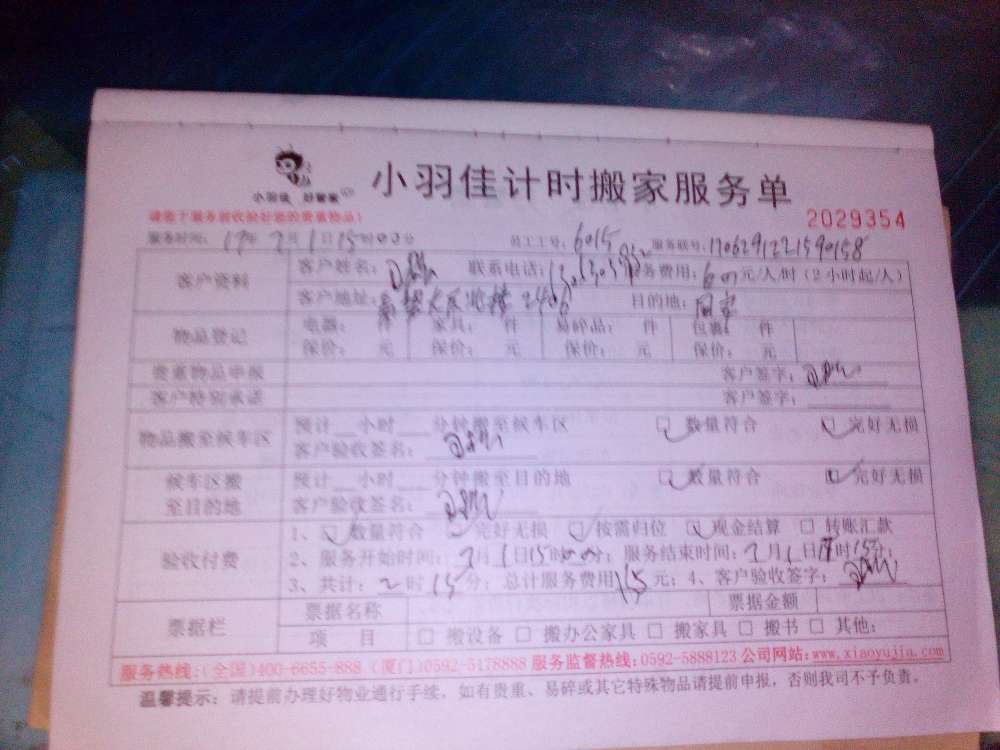 小羽佳 好管家
小羽佳计时搬家服务单
2029354
请您于服务前收验好您的贵重物品!
服务时间: 17年 7月1日15时00分 员工工号: 6015 服务联号: 1706291221590158
客户资料 客户姓名: 联系电话: 服务费用: 元/人/时 (2小时起/人)
客户地址: 2406 目的地:
物品登记 电器: 件 家具: 件 易碎品: 件 包裹: 件
保价: 元 保价: 元 保价: 元 保价: 元
贵重物品申报 客户签字:
客户特别承诺 客户签字:
物品搬至候车区 预计 小时 分钟搬至候车区 □ 数量符合 □ 完好无损
客户验收签名:
候车区搬至目的地 预计 小时 分钟搬至目的地 □ 数量符合 □ 完好无损
客户验收签名:
验收付费 1、□ 数量符合 □ 完好无损 □ 按需归位 □ 现金结算 □ 转账汇款
2、服务开始时间: 7月1日15时00分; 服务结束时间: 7月1日17时15分;
3、共计: 2时15分; 总计服务费用 元; 4、客户验收签字:
票据栏 票据名称 票据金额
项 目 □ 搬设备 □ 搬办公家具 □ 搬家具 □ 搬书 □ 其他:
服务热线:(全国)400-6655-888 (厦门)0592-5178888 服务监督热线:0592-5888123 公司网站:www.xiaoyujia.com
温馨提示: 请提前办理好物业通行手续, 如有贵重、易碎或其它特殊物品请提前申报, 否则我司不予负责。